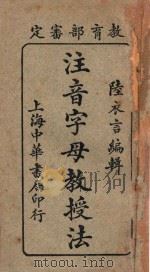 教育部審定
陸衣言編輯
注音字母教授法
上海中華書局印行